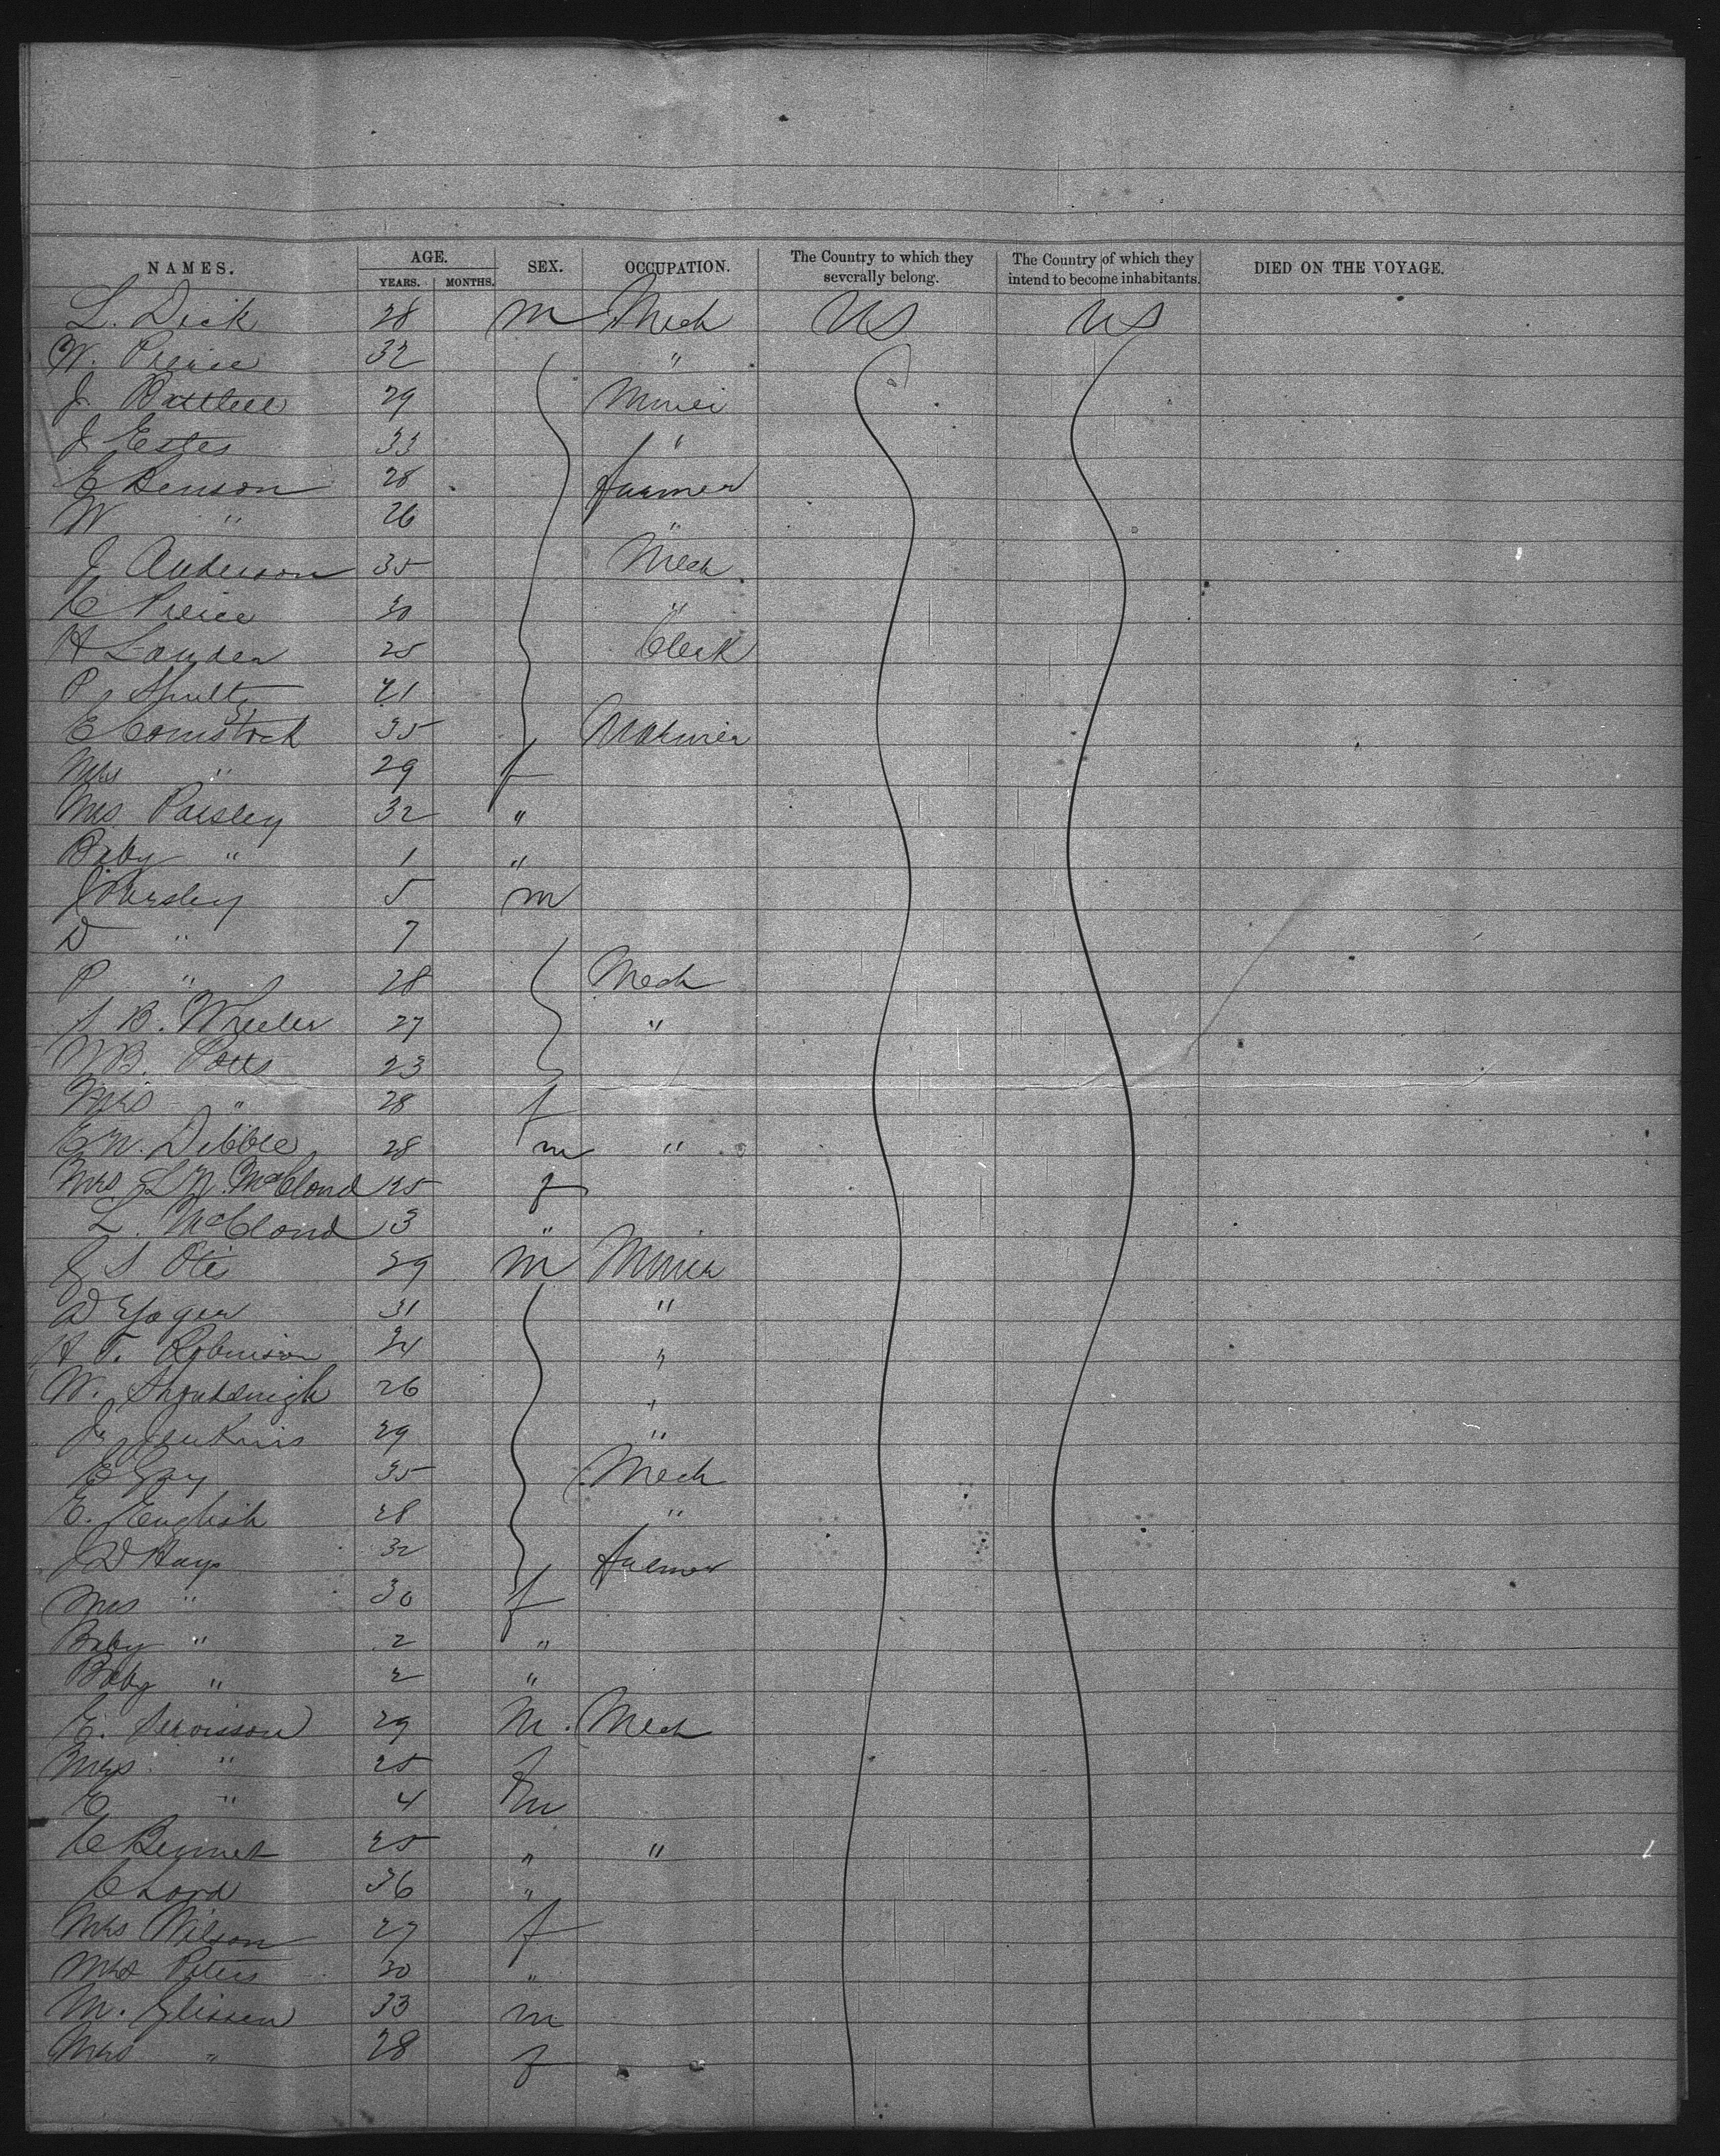 NAMES. AGE. SEX. OCCUPATION. The Country to which they severally belong. The Country of which they intend to become inhabitants. DIED ON THE VOYAGE.
YEARS. MONTHS.
L. Dick 28 m Mech US US
W. Pierce 32 "
J. 29 Miner
J Estes 33 "
E Benson 28 Farmer
W " 26 "
J Anderson 35 Mech
C Pierce 30 "
H Lander 25 Clerk
P. 41
E Comstock 35 Mariner
Mrs " 29 f
Mrs Paisley 32 "
Baby " 1 "
J Paisley 5 m
D " 7
P " 28 Mech
S B. Wheeler 27 "
W B. Potts 23
Mrs " 28 f
E W. Dibble 28 m "
Mrs L N. McCloud 25 f
L. McCloud 3 "
J S Otis 29 m Miner
D Yager 31 "
H T. Robinson 34 "
W. 26 "
J. Jenkins 29 "
E Gay 35 Mech
E. English 28 "
J D Hays 32 Farmer
Mrs " 30 f
Baby " 2 "
Baby " 2 "
E. 29 M. Mech
Mrs " 25 f
E " 4 m
C Bennet 25 " "
C Lord 36 "
Mrs Wilson 27 f
Mrs Peters 30 "
M. Glissen 33 m
Mrs " 28 f